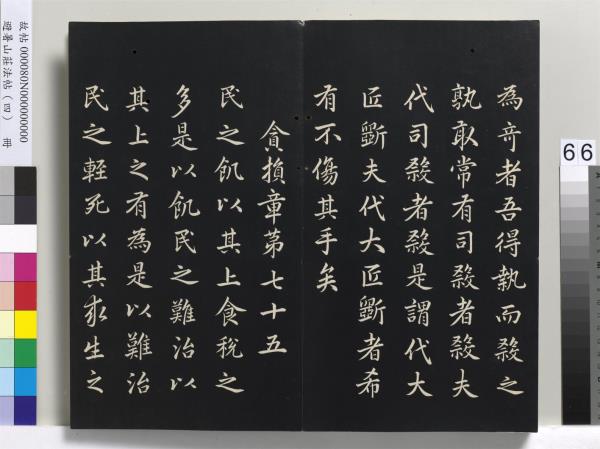 為竒者吾得執而殺之
孰敢常有司殺者殺夫
代司殺者殺是謂代大
匠斲夫代大匠斲者希
有不傷其手矣
貪損章第七十五
民之飢以其上食稅之
多是以飢民之難治以
其上之有為是以難治
民之輕死以其求生之
故帖 000080N000000000
避暑山莊法帖（四） 冊
66